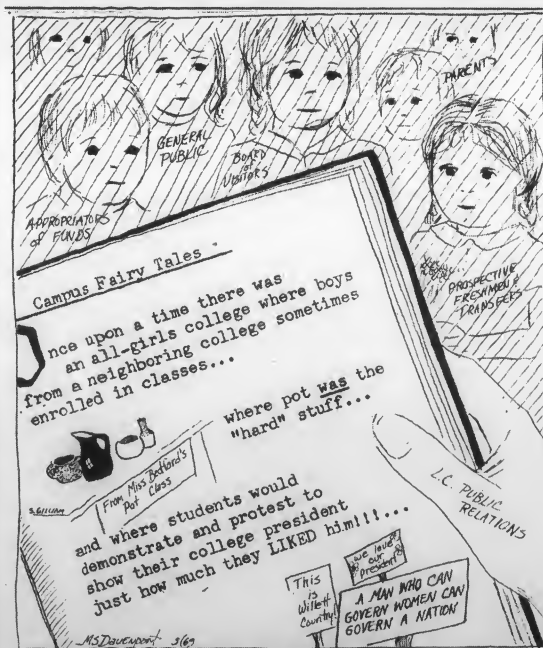 PARENTS
GENERAL
PUBLIC
BOARD
of
VISITORS
APPROPRIATORS
of FUNDS
PROSPECTIVE
FRESHMEN &
TRANSFERS
Campus Fairy Tales
Once upon a time there was
an all-girls college where boys
from a neighboring college sometimes
enrolled in classes...
where pot was the
"hard" stuff...
From Miss Bedford's
Pot
Class
S. GILLIAM
and where students would
demonstrate and protest to
show their college president
just how much they LIKED him!!!...
L.C. PUBLIC
RELATIONS
This
is
Willett
Country!
we love
our
president
A MAN WHO CAN
GOVERN WOMEN CAN
GOVERN A NATION
M.S. Davenport 3/69